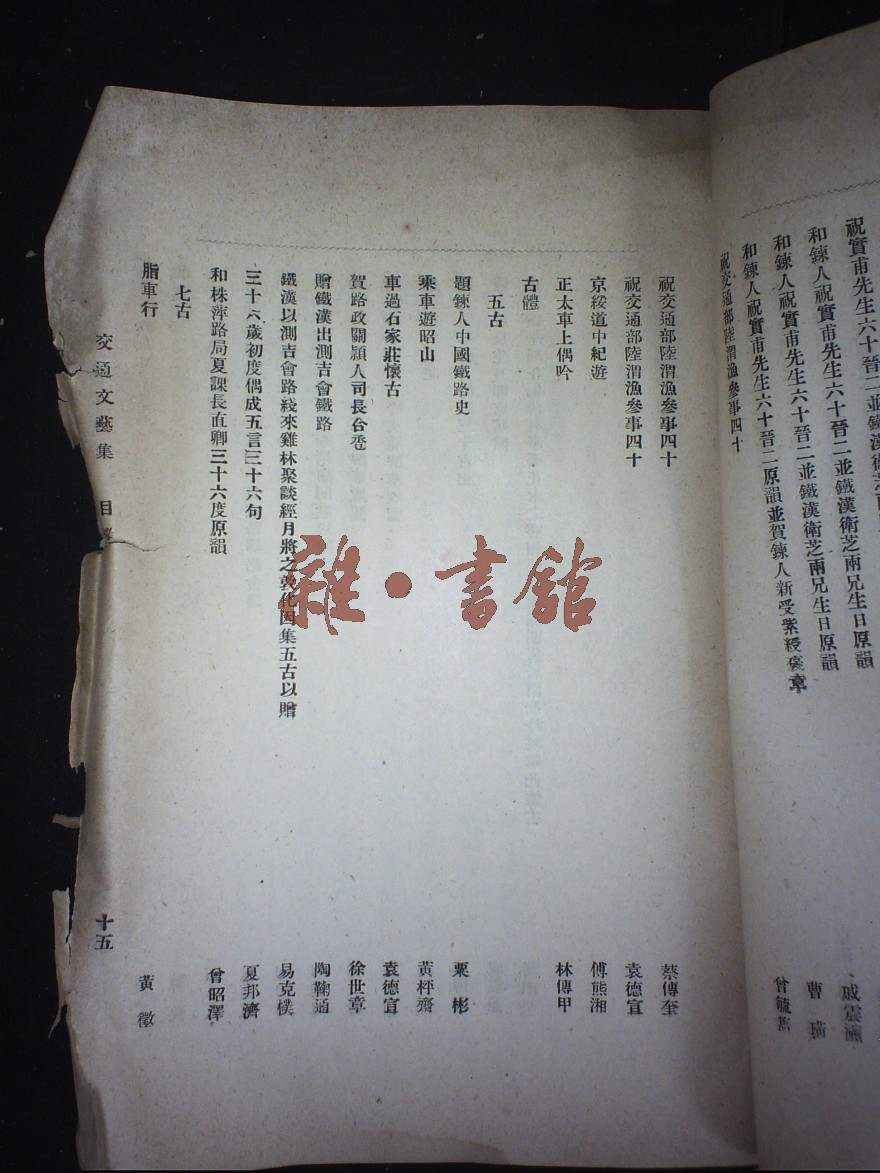 祝實甫先生六十晉二並鐵漢衛芝兩
和鍊人祝實甫先生六十晉二並鐵漢衛芝兩兄生日原韻 戚震瀛
和鍊人祝實甫先生六十晉二並鐵漢衛芝兩兄生日原韻 曹璜
和鍊人祝實甫先生六十晉二原韻並賀鍊人新受紫綬褒章 曾毓雋
祝交通部陸渭漁參事四十
祝交通部陸渭漁參事四十 蔡傳奎
祝交通部陸渭漁參事四十 袁德宣
京綏道中紀遊 傅熊湘
正太車上偶吟 林傳甲
古體
五古
題鍊人中國鐵路史 粟彬
乘車遊昭山 黃枰齋
車過石家莊懷古 袁德宣
賀路政關潁人司長台巹 徐世章
贈鐵漢出測吉會鐵路 陶鞠通
鐵漢以測吉會路綫來雞林聚談經月將之敦化因集五古以贈 易克樸
三十六歲初度偶成五言三十六句 夏邦濟
和株萍路局夏課長直卿三十六度原韻 曾昭澤
七古
脂車行 黃徵
交通文藝集 目 十五
雜·書館